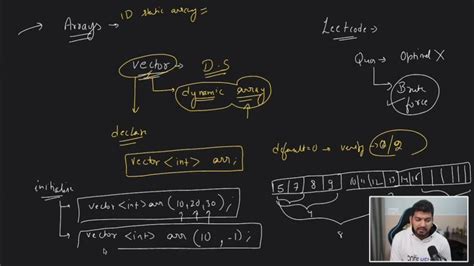 → Arrays → 1D static array =
vector → D.S
dynamic array
declare
vector <int> arr;
initialize
vector <int> arr (10,20,30);
vector <int> arr (10, -1);
Leetcode:-
Ques → Optimal X
Brute
force
default=0 → verify
5 7 8 9 10 11 12 13 14 15
4
8